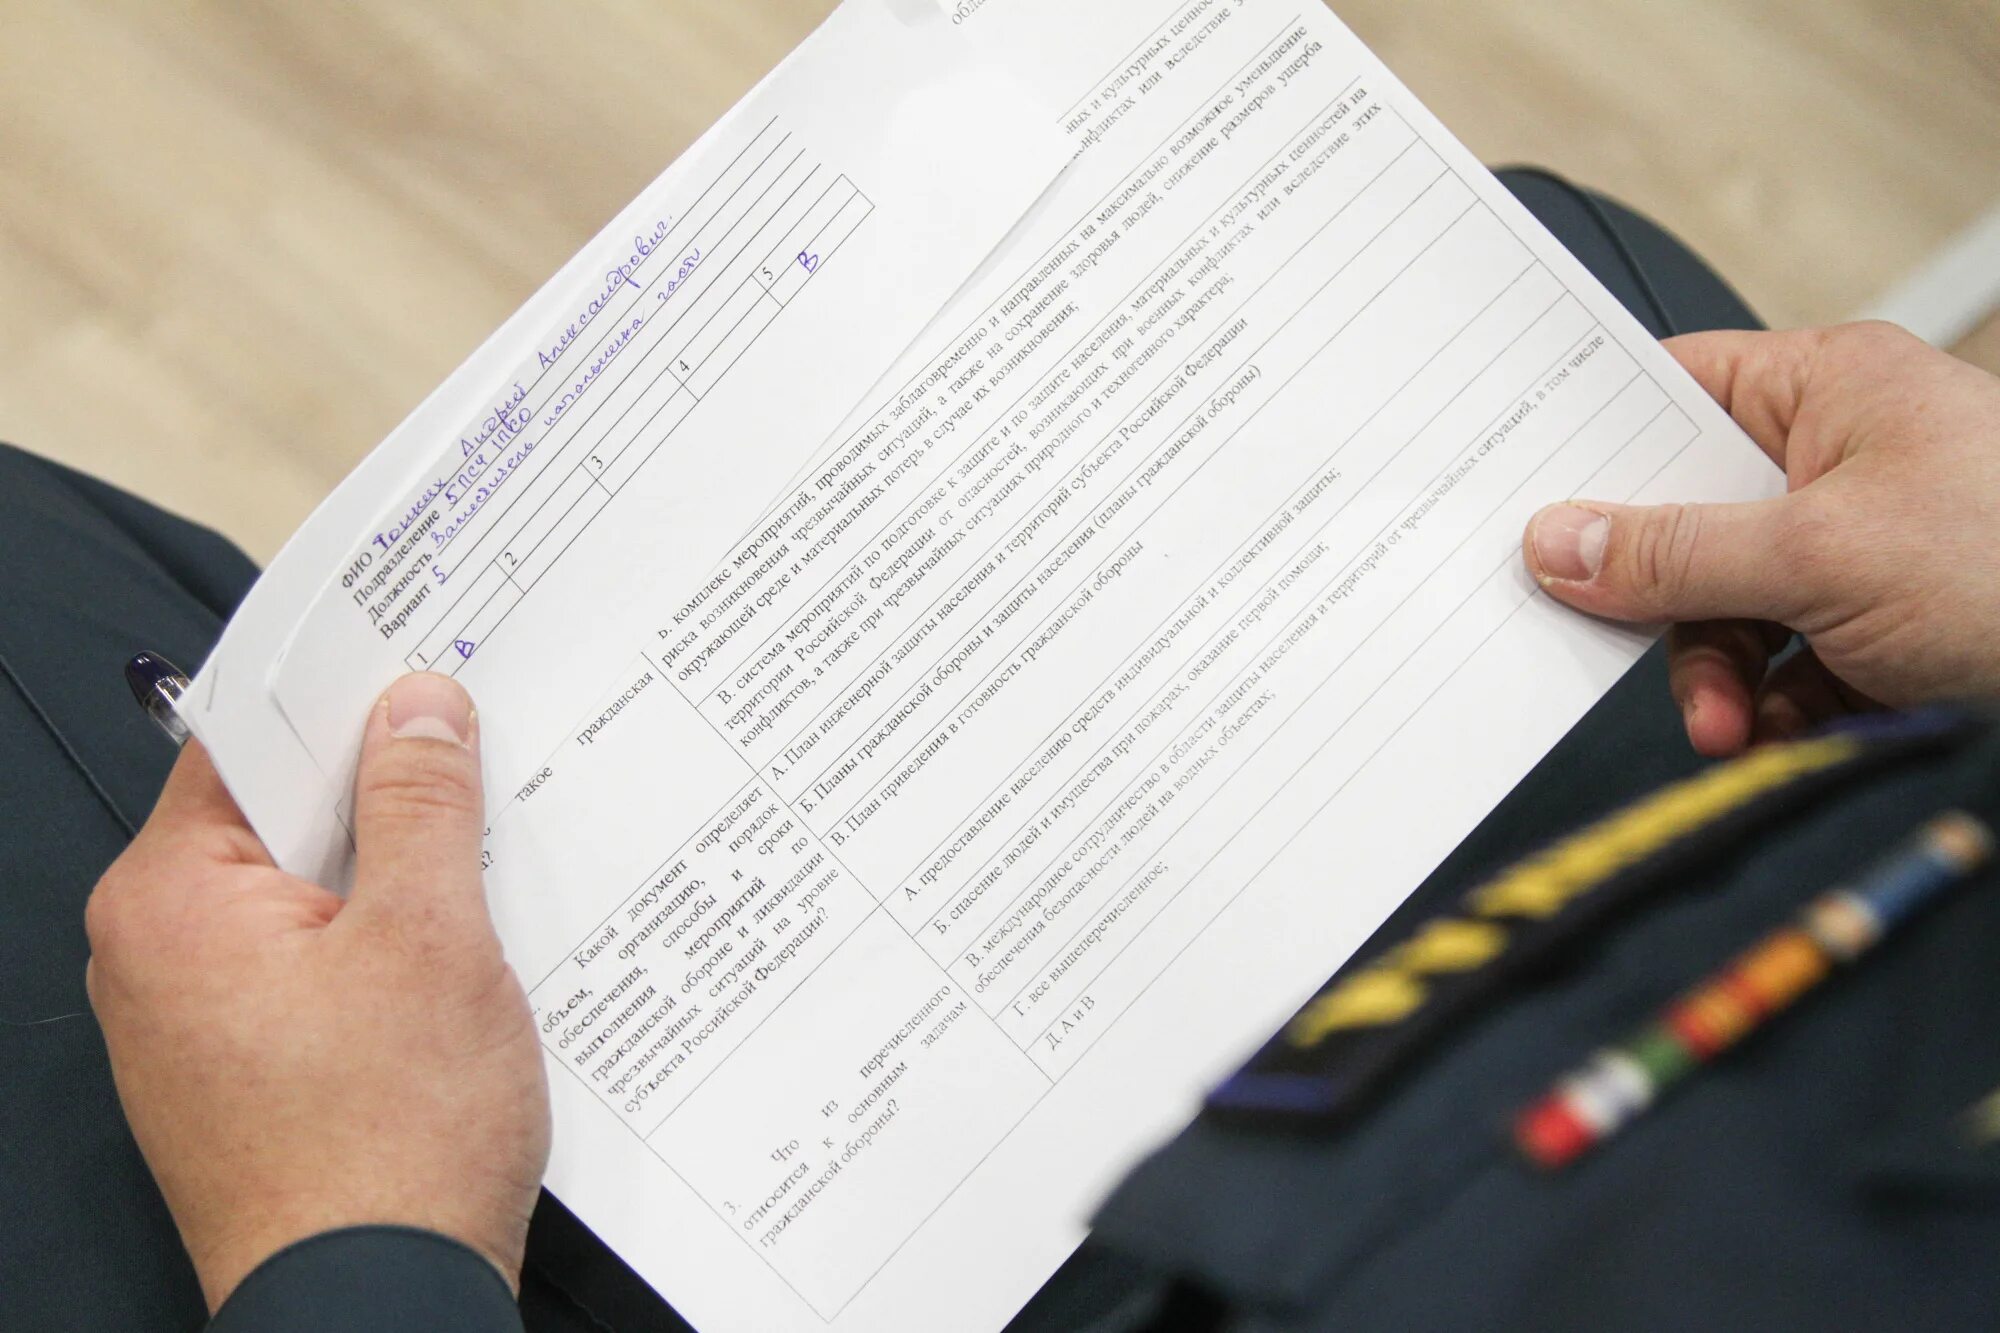 ФИО Тонких Андрей Александрович.
Подразделение 5ПСЧ 1ПСО
Должность Заместитель начальника части
Вариант 5
1 2 3 4 5
В В
обла
ных и культурных ценнос
конфликтах или вследствие э
такое гражданская
Б. комплекс мероприятий, проводимых заблаговременно и направленных на максимально возможное уменьшение
риска возникновения чрезвычайных ситуаций, а также на сохранение здоровья людей, снижение размеров ущерба
окружающей среде и материальных потерь в случае их возникновения;
В. система мероприятий по подготовке к защите и по защите населения, материальных и культурных ценностей на
территории Российской Федерации от опасностей, возникающих при военных конфликтах или вследствие этих
конфликтов, а также при чрезвычайных ситуациях природного и техногенного характера;
Какой документ определяет
объем, организацию, порядок
обеспечения, способы и сроки
выполнения мероприятий по
гражданской обороне и ликвидации
чрезвычайных ситуаций на уровне
субъекта Российской Федерации?
А. План инженерной защиты населения и территорий субъекта Российской Федерации
Б. Планы гражданской обороны и защиты населения (планы гражданской обороны)
В. План приведения в готовность гражданской обороны
3. Что из перечисленного
относится к основным задачам
гражданской обороны?
А. предоставление населению средств индивидуальной и коллективной защиты;
Б. спасение людей и имущества при пожарах, оказание первой помощи;
В. международное сотрудничество в области защиты населения и территорий от чрезвычайных ситуаций, в том числе
обеспечения безопасности людей на водных объектах;
Г. все вышеперечисленное;
Д. А и В